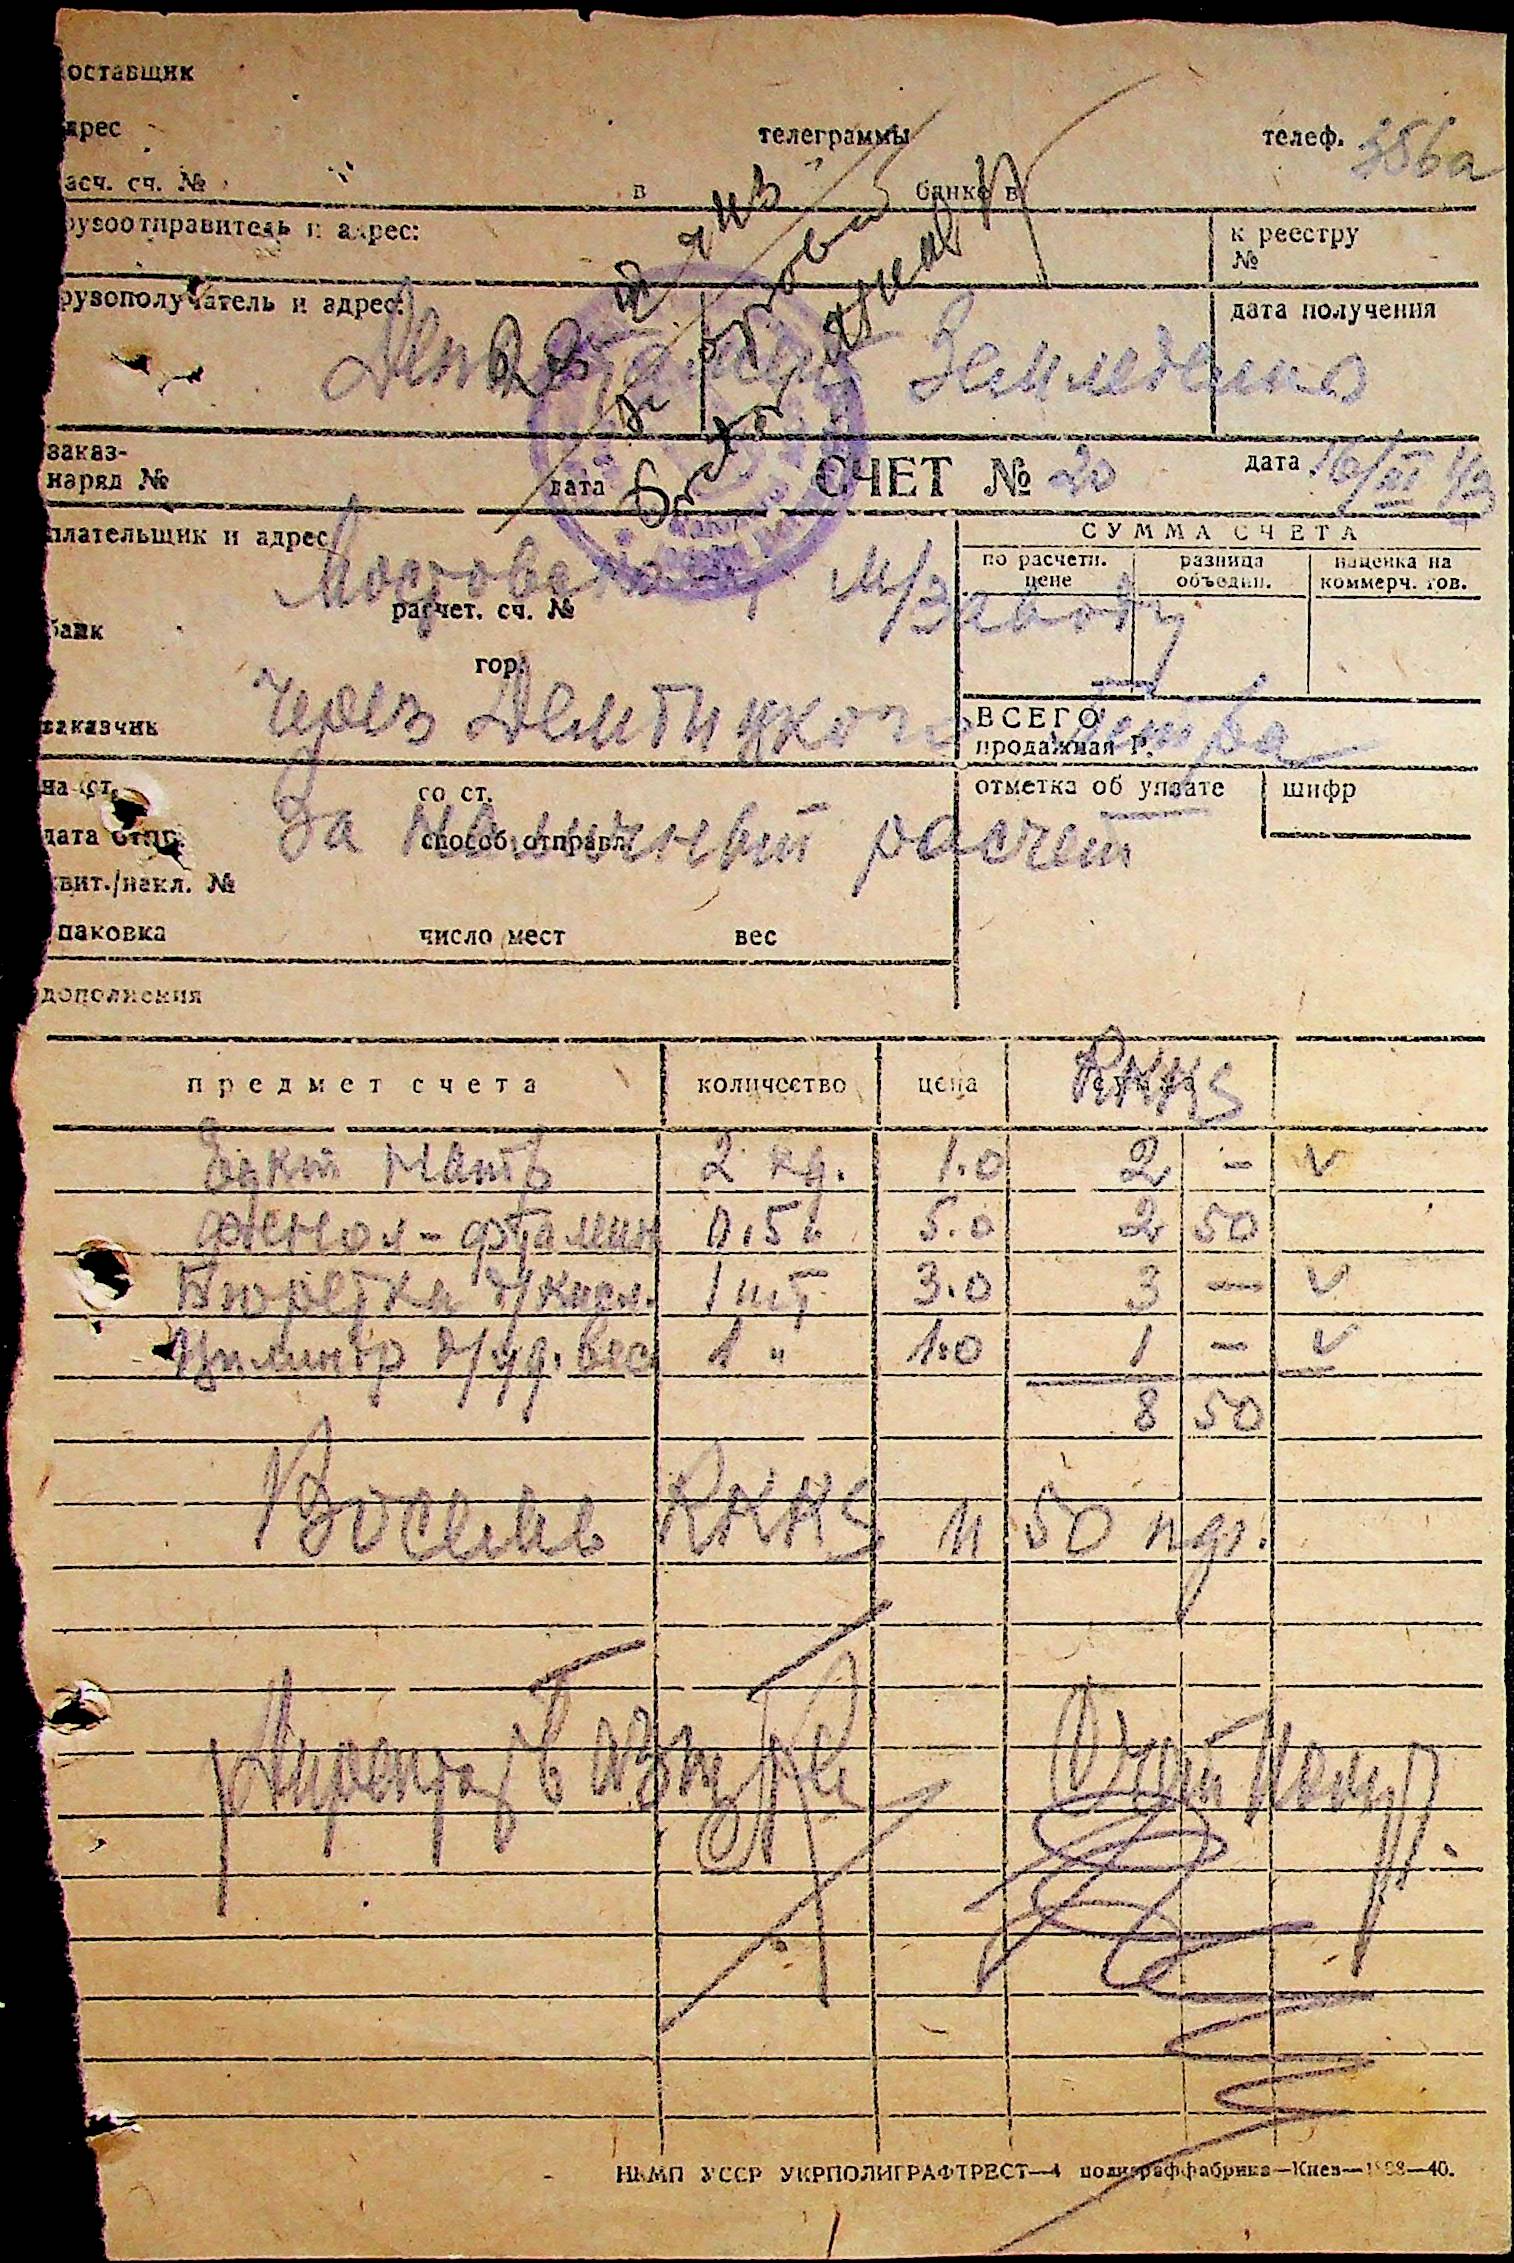 оставщик
дрес телеграммы телеф. 356а
асч. сч. № в банке в
рузоотправитель и адрес: к реестру
№
рузополучатель и адрес: дата получения
Земледелию
заказ-
наряд № дата СЧЕТ № 20 дата 16/III 43
плательщик и адрес СУММА СЧЕТА
по расчетн. цене разница объедин. наценка на коммерч. тов.
Мостовскому м/заводу
расчет. сч. №
банк
гор.
через
заказчик ВСЕГО
продажная Р.
на ст. со ст. отметка об уплате шифр
За наличный расчет
дата отпр. способ отправл.
квит./накл. №
паковка число мест вес
дополнения
предмет счета количество цена RKKS
Едкий натр 2 кг. 1.0 2 —
Фенол-фталеин 0.5 5.0 2 50
Бюретка д/кисл. 1 шт 3.0 3 —
Цилиндр д/уд. веса 1 " 1.0 1 —
8 50
Восемь RKKS и 50 пф.
Директор
НКМП УССР УКРПОЛИГРАФТРЕСТ—4 полиграффабрика—Киев—1898—40.